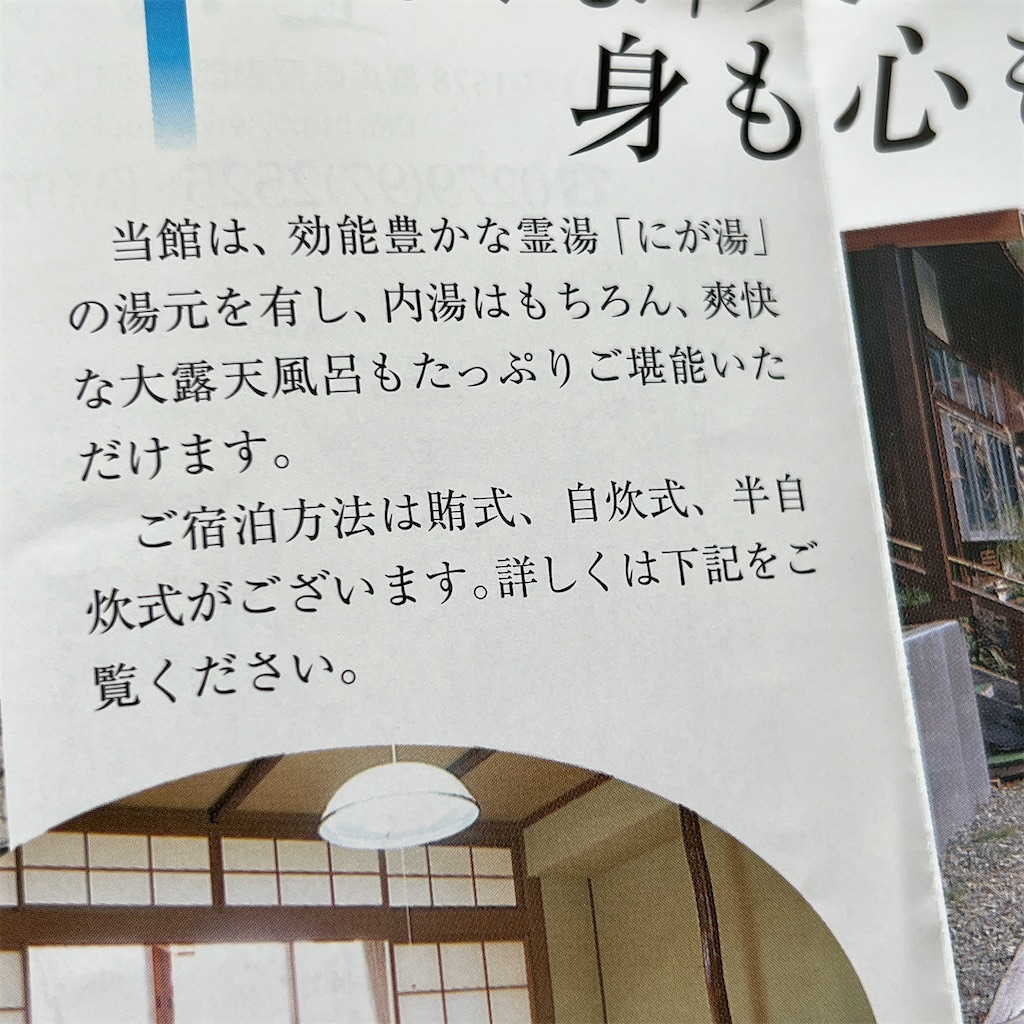 身も心も
当館は、効能豊かな霊湯「にが湯」
の湯元を有し、内湯はもちろん、爽快
な大露天風呂もたっぷりご堪能いた
だけます。
ご宿泊方法は賄式、自炊式、半自
炊式がございます。詳しくは下記をご
覧ください。